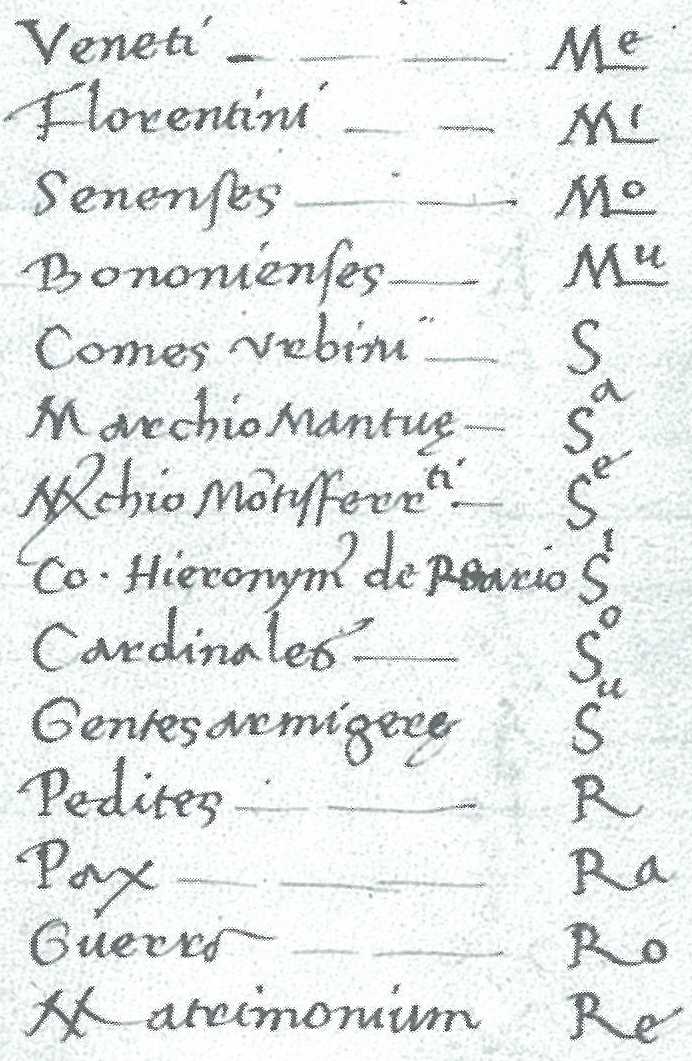 Veneti — — — Me
Florentini — — Mi
Senenses — — Mo
Bononienses — Mu
Comes Urbini — S
Marchio Mantuę — Sa
Mchio Mōtisferrti — Se
Co. Hieronym de Roario Si
Cardinales — So
Gentes armigerę Su
Pedites — — R
Pax — — — Ra
Guerra — — Ro
Matrimonium Re